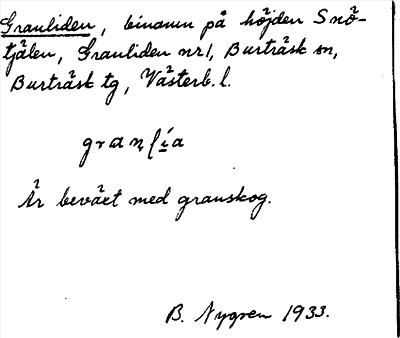 Granliden, binamn på höjden Snö-
tjälen, Granliden nr1, Burträsk sn,
Burträsk tg, Västerb. l.
granlía
Är beväxt med granskog.
B. Nygren 1933.